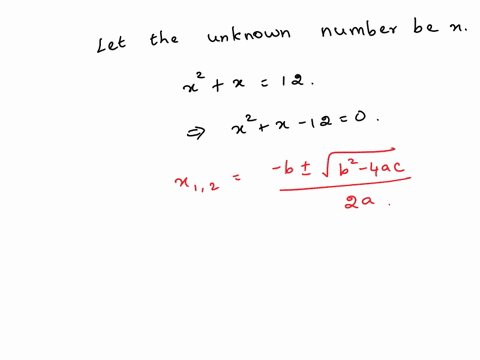 Let the unknown number be x.
x² + x = 12.
⇒ x² + x - 12 = 0.
x₁,₂ = (-b ± √(b² - 4ac)) / 2a.